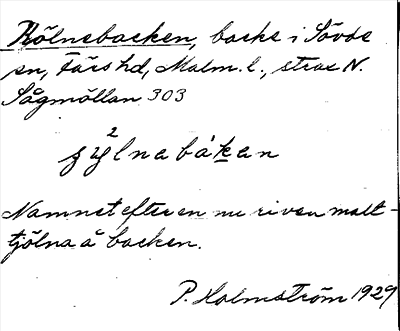 Kölnebacken, backe i Sövde
sn, Färs hd, Malm. l., strax N.
Sågmöllan 303
2
ȷylnabákan
Namnet efter en nu riven malt-
tjölna å backen.
P. Holmström 1929